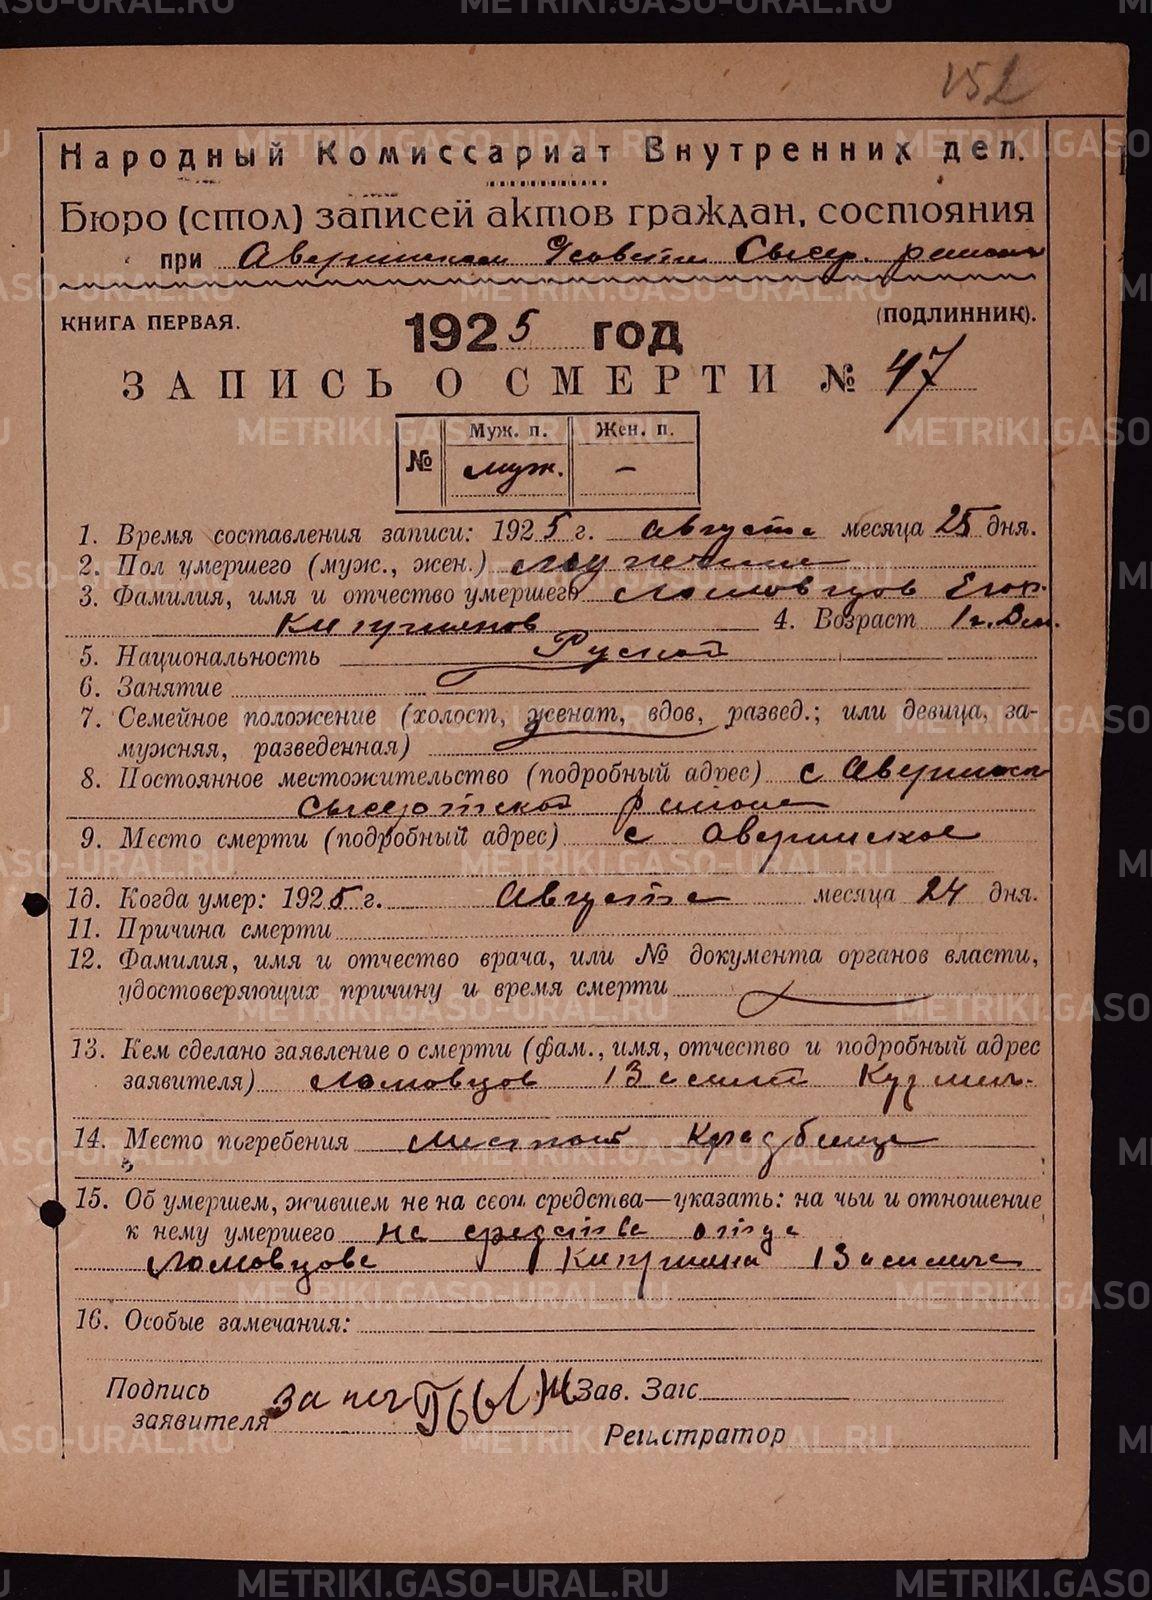 152
Народный Комиссариат Внутренних дел.
Бюро (стол) записей актов граждан, состояния
при Аверинском С/совете Сысер. района
КНИГА ПЕРВАЯ. 1925 год (ПОДЛИННИК).
ЗАПИСЬ О СМЕРТИ № 47
№ Муж. п. Жен. п.
муж. —
1. Время составления записи: 1925 г. Августа месяца 25 дня.
2. Пол умершего (муж., жен.) мужчина
3. Фамилия, имя и отчество умершего Ломовцов Егор
Киприянов 4. Возраст 1 г.
5. Национальность Руской
6. Занятие
7. Семейное положение (холост, женат, вдов, развед.; или девица, за-
мужняя, разведенная)
8. Постоянное местожительство (подробный адрес) с Аверинск
Сысертской района
9. Место смерти (подробный адрес) с Аверинское
10. Когда умер: 1925 г. Августа месяца 24 дня.
11. Причина смерти
12. Фамилия, имя и отчество врача, или № документа органов власти,
удостоверяющих причину и время смерти
13. Кем сделано заявление о смерти (фам., имя, отчество и подробный адрес
заявителя) Ломовцов Засим Кузмич.
14. Место погребения местной Кладбище
15. Об умершем, жившем не на свои средства—указать: на чьи и отношение
к нему умершего на средства отца
Ломовцова Киприяна
16. Особые замечания:
Подпись Зав. Загс
заявителя За нег
Регистратор
METRIKI.GASO-URAL.RU